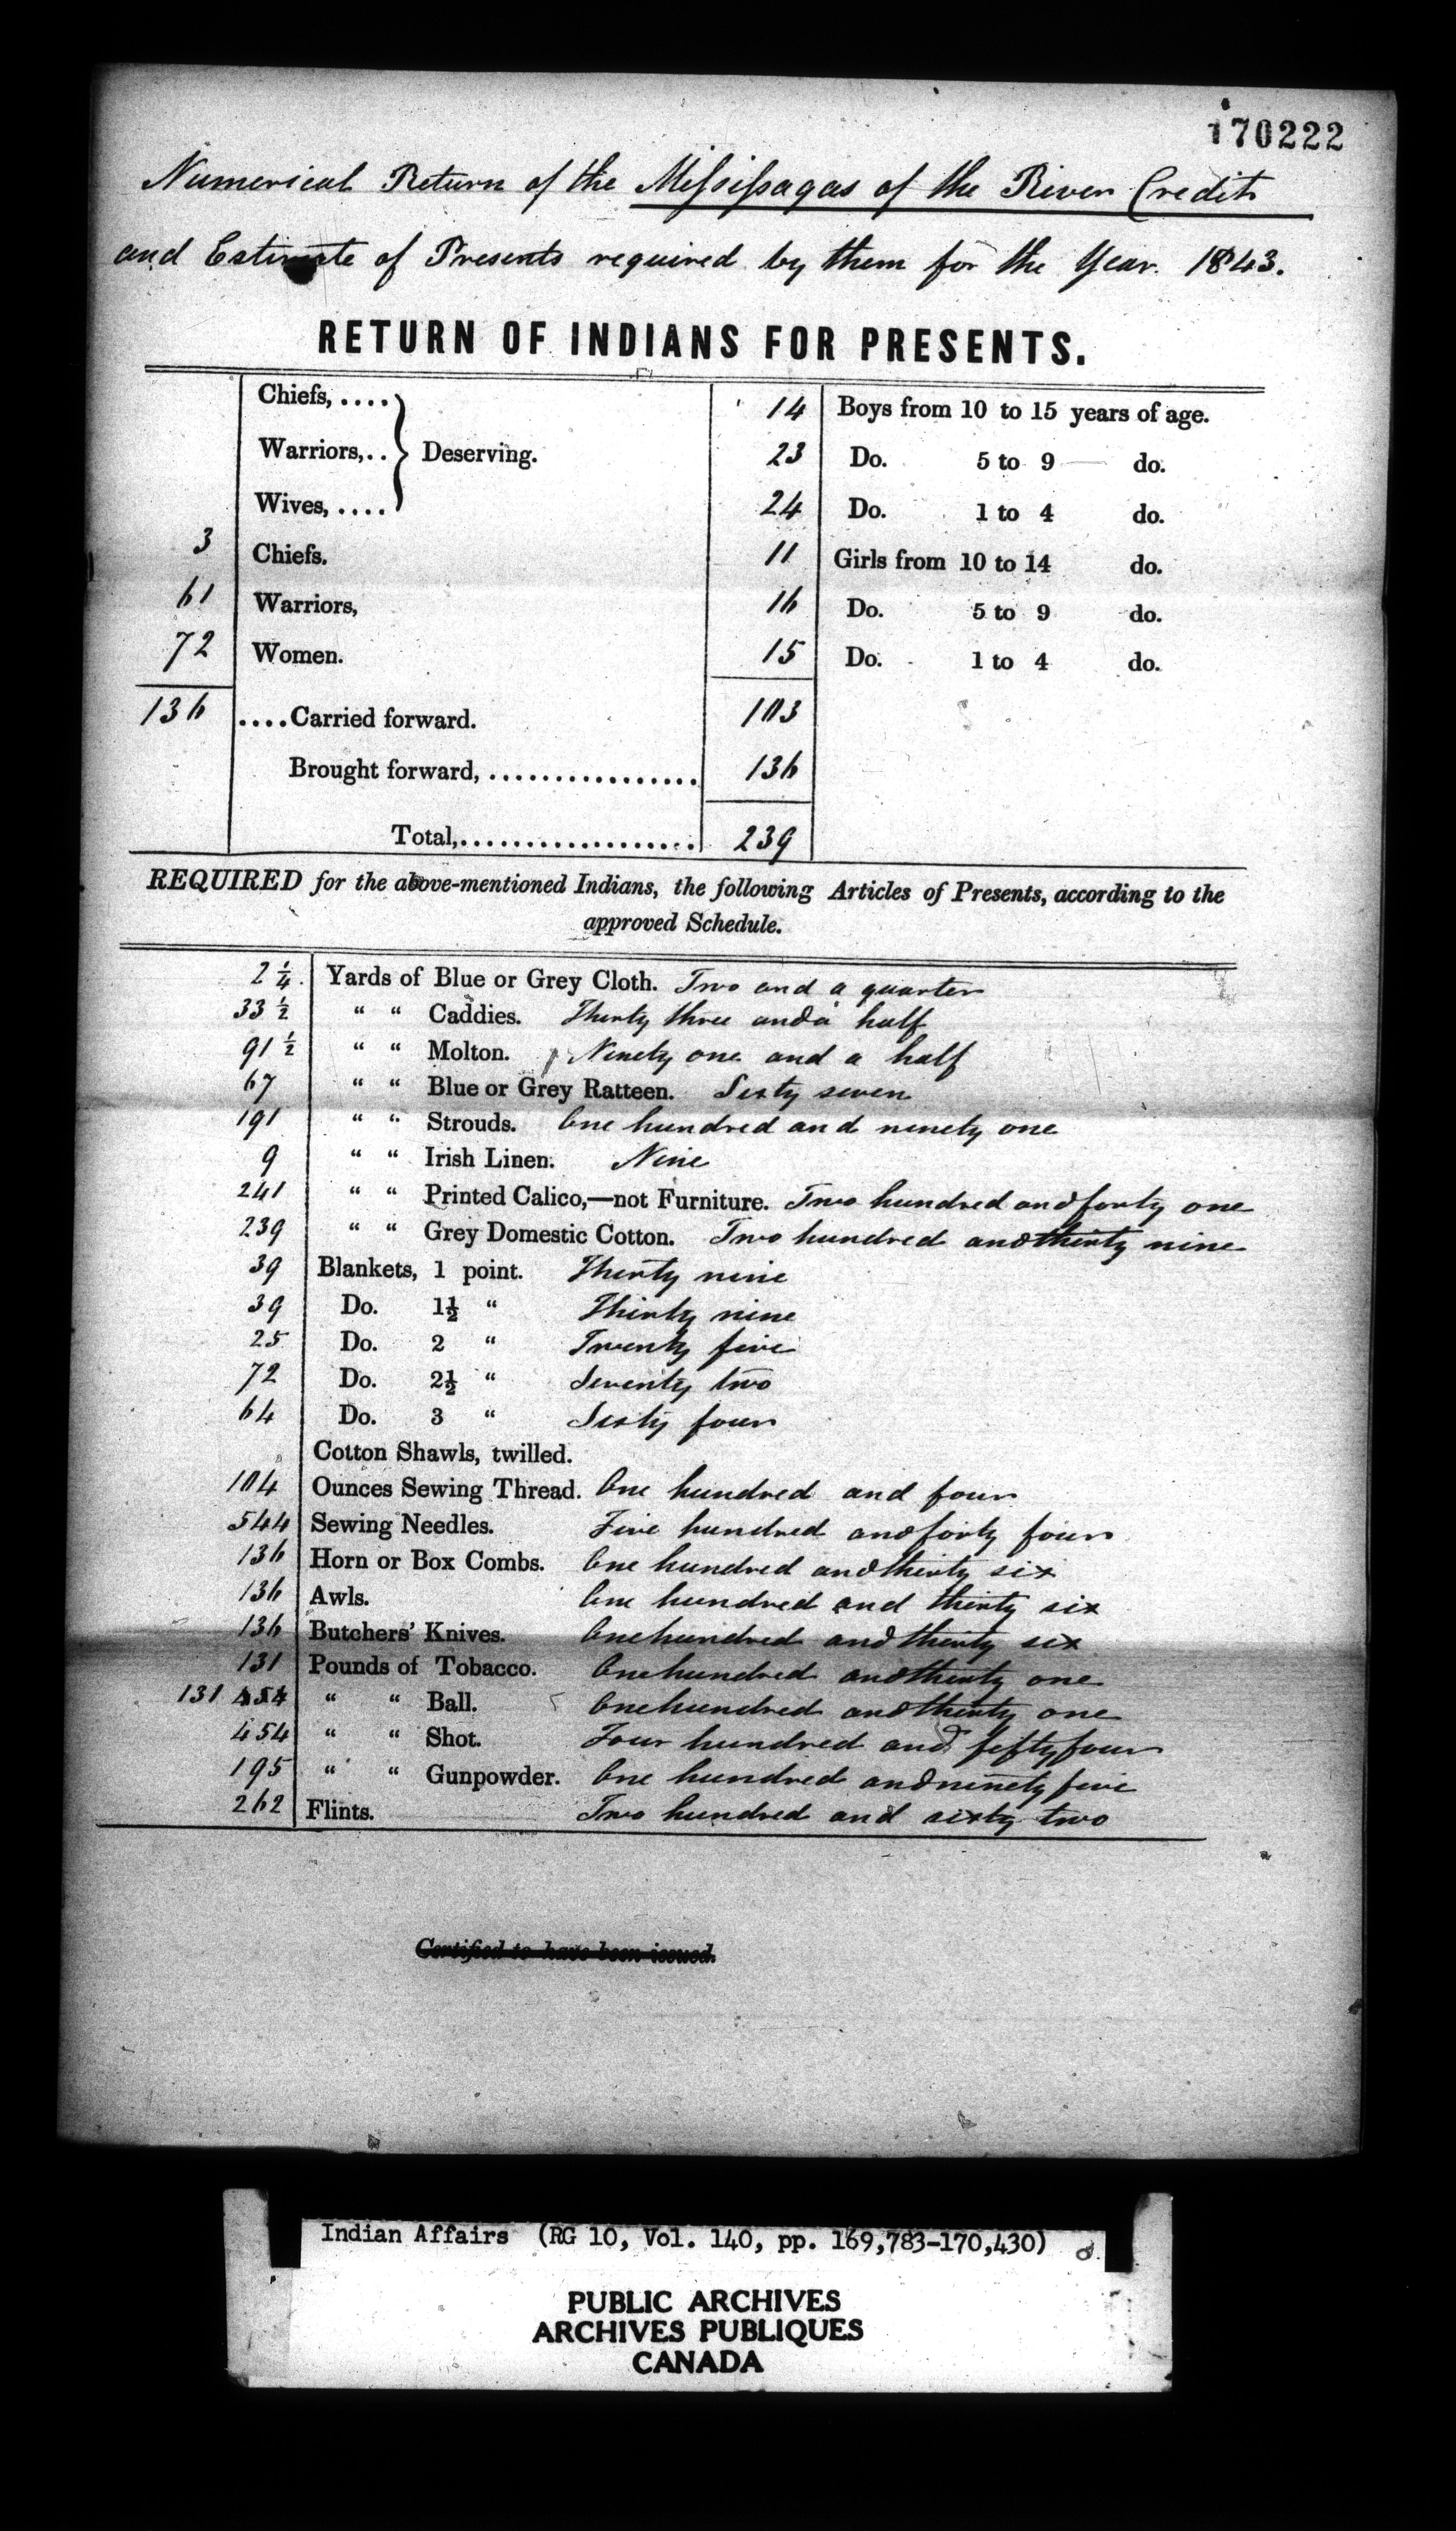 170222
Numerical Return of the Missisagas of the River Credit
and Estimate of Presents required by them for the Year 1843.
RETURN OF INDIANS FOR PRESENTS.
Chiefs, .... } Deserving.
Warriors, ..
Wives, ....
14 Boys from 10 to 15 years of age.
23 Do. 5 to 9 do.
24 Do. 1 to 4 do.
3 Chiefs. 11 Girls from 10 to 14 do.
61 Warriors, 16 Do. 5 to 9 do.
72 Women. 15 Do. 1 to 4 do.
136 ....Carried forward. 103
Brought forward, ................ 136
Total,................... 239
REQUIRED for the above-mentioned Indians, the following Articles of Presents, according to the
approved Schedule.
2 1/4 Yards of Blue or Grey Cloth. Two and a quarter
33 1/2 " " Caddies. Thirty three and a half
91 1/2 " " Molton. Ninety one and a half
67 " " Blue or Grey Ratteen. Sixty seven
191 " " Strouds. One hundred and ninety one
9 " " Irish Linen. Nine
241 " " Printed Calico,—not Furniture. Two hundred and forty one
239 " " Grey Domestic Cotton. Two hundred and thirty nine
39 Blankets, 1 point. Thirty nine
39 Do. 1½ " Thirty nine
25 Do. 2 " Twenty five
72 Do. 2½ " Seventy two
64 Do. 3 " Sixty four
Cotton Shawls, twilled.
104 Ounces Sewing Thread. One hundred and four
544 Sewing Needles. Five hundred and forty four
136 Horn or Box Combs. One hundred and thirty six
136 Awls. One hundred and thirty six
136 Butchers' Knives. One hundred and thirty six
131 Pounds of Tobacco. One hundred and thirty one
131 454 " " Ball. One hundred and thirty one
454 " " Shot. Four hundred and fifty four
195 " " Gunpowder. One hundred and ninety five
262 Flints. Two hundred and sixty two
Certified to have been issued.
Indian Affairs (RG 10, Vol. 140, pp. 169,783-170,430)
PUBLIC ARCHIVES
ARCHIVES PUBLIQUES
CANADA